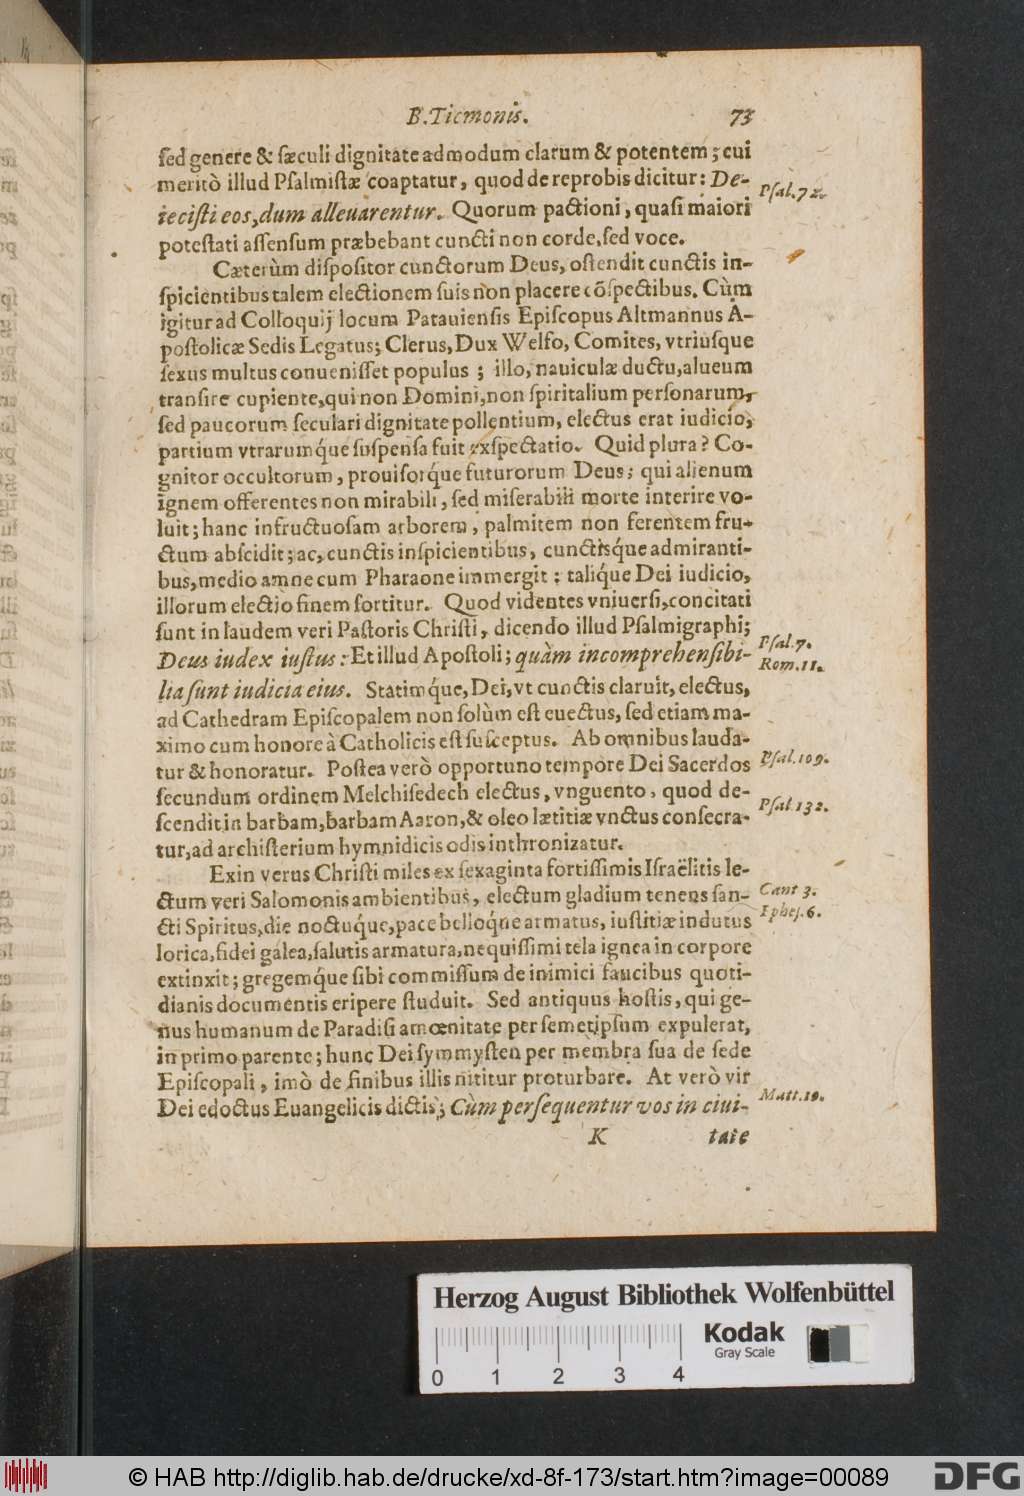 B. Tiemonis. 73
ſed genere & ſæculi dignitate admodum clarum & potentem; cui
meritò illud Pſalmiſtæ coaptatur, quod de reprobis dicitur: De-
ieciſti eos, dum alleuarentur. Quorum pactioni, quaſi maiori
Pſal. 72.
poteſtati aſſenſum præbebant cuncti non corde, ſed voce.
Cæterùm diſpoſitor cunctorum Deus, oſtendit cunctis in-
ſpicientibus talem electionem ſuis non placere cõſpectibus. Cùm
igitur ad Colloquij locum Patauienſis Epiſcopus Altmannus A-
poſtolicæ Sedis Legatus; Clerus, Dux Welfo, Comites, vtriuſque
ſexus multus conueniſſet populus; illo, nauiculæ ductu, alueum
tranſire cupiente, qui non Domini, non ſpiritalium perſonarum,
ſed paucorum ſeculari dignitate pollentium, electus erat iudicio,
partium vtrarumq́ue ſuſpenſa fuit exſpectatio. Quid plura? Co-
gnitor occultorum, prouiſorq́ue futurorum Deus; qui alienum
ignem offerentes non mirabili, ſed miſerabili morte interire vo-
luit; hanc infructuoſam arborem, palmitem non ferentem fru-
ctum abſcidit; ac, cunctis inſpicientibus, cunctisq́ue admiranti-
bus, medio amne cum Pharaone immergit: taliq́ue Dei iudicio,
illorum electio finem ſortitur. Quod videntes vniuerſi, concitati
ſunt in laudem veri Paſtoris Chriſti, dicendo illud Pſalmigraphi;
Deus iudex iuſtus: Et illud Apoſtoli; quàm incomprehenſibi-
Pſal. 7.
Rom. 11.
lia ſunt iudicia eius. Statimq́ue, Dei, vt cunctis claruit, electus,
ad Cathedram Epiſcopalem non ſolùm eſt euectus, ſed etiam ma-
ximo cum honore à Catholicis eſt ſuſceptus. Ab omnibus lauda-
tur & honoratur. Poſtea verò opportuno tempore Dei Sacerdos
Pſal. 109.
ſecundum ordinem Melchiſedech electus, vnguento, quod de-
ſcendit in barbam, barbam Aaron, & oleo lætitiæ vnctus conſecra-
Pſal 132.
tur, ad archiſterium hymnidicis odis inthronizatur.
Exin verus Chriſti miles ex ſexaginta fortiſſimis Iſraëlitis le-
ctum veri Salomonis ambientibus, electum gladium tenens ſan-
Cant 3.
cti Spiritus, die noctuq́ue, pace belloq́ue armatus, iuſtitiæ indutus
Epheſ. 6.
lorica, fidei galea, ſalutis armatura, nequiſſimi tela ignea in corpore
extinxit; gregemq́ue ſibi commiſſum de inimici faucibus quoti-
dianis documentis eripere ſtuduit. Sed antiquus hoſtis, qui ge-
nus humanum de Paradiſi amœnitate per ſemetipſum expulerat,
in primo parente; hunc Dei ſymmyſten per membra ſua de ſede
Epiſcopali, imò de finibus illis nititur proturbare. At verò vir
Dei edoctus Euangelicis dictis; Cùm perſequentur vos in ciui-
Matt. 10.
K tate
Herzog August Bibliothek Wolfenbüttel
Kodak
Gray Scale
0 1 2 3 4
© HAB http://diglib.hab.de/drucke/xd-8f-173/start.htm?image=00089
DFG